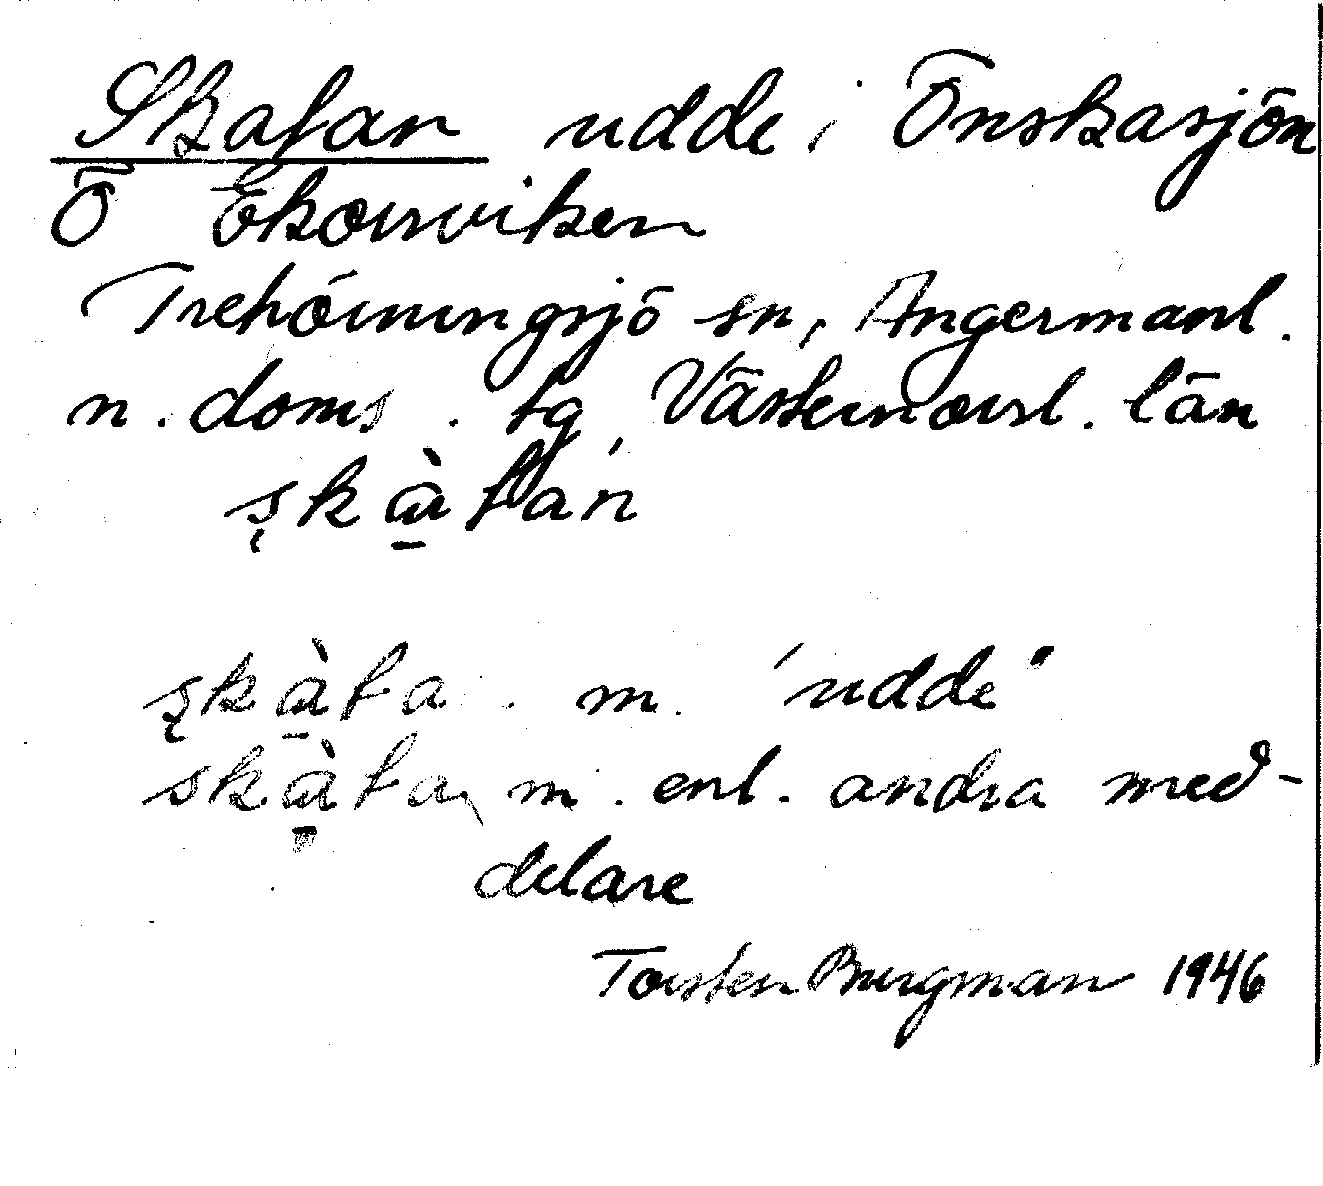 Skatan udde i Önskasjön
Ö Ekorrviken
Trehörningsjö sn, Ångermanl.
n. doms. tg, Västernorrl. län
skàtan
skàta . m. "udde"
skàta, m. enl. andra med-
delare
Torsten Burgman 1946